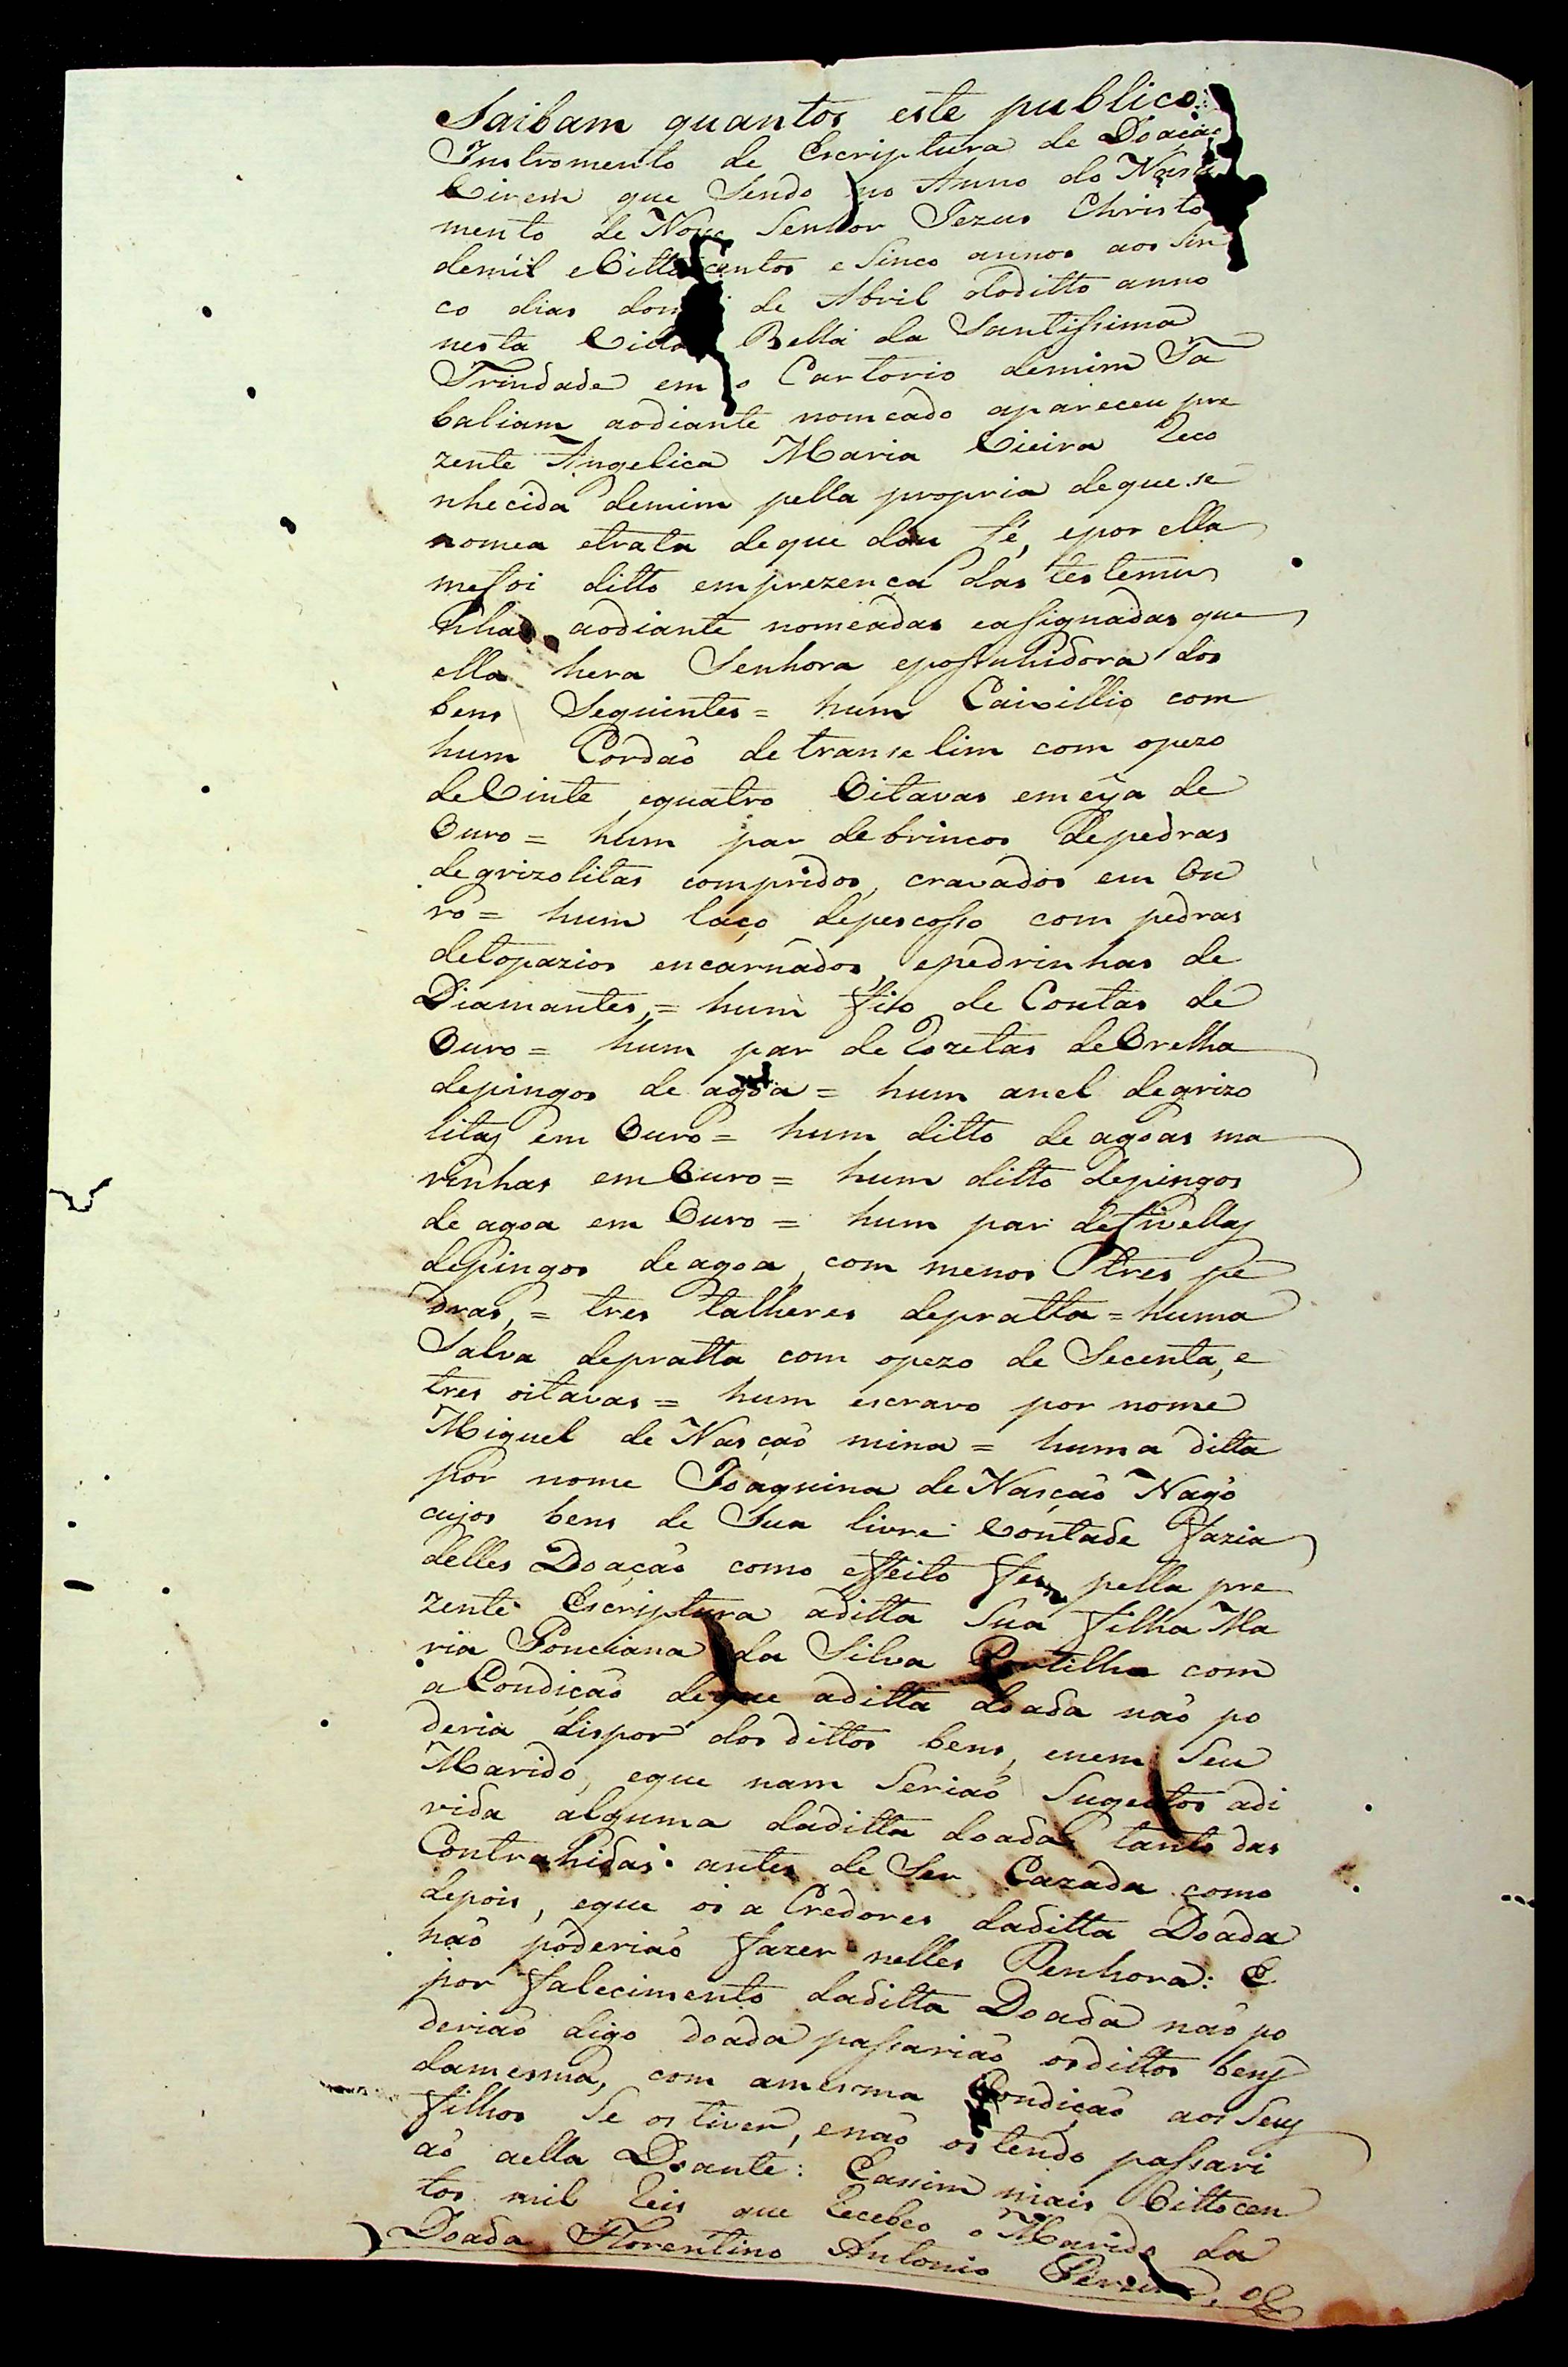 Saibam quantos este publico
Instromento de Escriptura de Doaçaõ
Virem que Sendo no Anno do Nasci
mento de Noço Senhor Jezus Christo
demil eVitto centos e Sinco annos aos Sin
co dias do de Abril doditto anno
nesta Villa Bella da Santissima
Trindade em o Cartorio demim Ta
baliam aodiante nomeado apareceu pre
zente Angelica Maria Vieira Reco
nhecida demim pella propria deque se
nomea etrata deque dou fé, epor ella
mefoi ditto emprezença das testemu
nhas aodiante nomeadas eassignadas que
ella hera Senhora epossuhidora dos
bens Seguintes = hum Caixillio com
hum Cordaõ de transelim com opezo
deVinte equatro Oitavas emeya de
Ouro = hum par debrincos depedras
degrizolitas compridos, cravados em Ou
ro = hum laço depescosso com pedras
detopazios encarnados, epedrinhas de
Diamantes, = hum fio de Contas de
Ouro = hum par de Rozetas deOrelha
depingos de agoa = hum anel degrizo
litas em Ouro = hum ditto de agoas ma
rinhas emOuro = hum ditto depingos
de agoa em Ouro = hum par defivellas
depingos deagoa, com menos tres pe
dras, = tres talheres depratta = huma
Salva depratta com opezo de Secenta, e
tres oitavas = hum escravo por nome
Miguel de Nasçaõ mina = huma ditta
por nome Joaquina de Nasçaõ Nagô
cujos bens de Sua livre Vontade fazia
delles Doaçaõ como effeito fes pella pre
zente Escriptura aditta Sua filha Ma
ria Ponciana da Silva Portilha com
a Condiçaõ deque aditta doada naõ po
deria dispor dos dittos bens, enem Seu
Marido, eque nam Seriaõ Sugeitos adi
vida alguma daditta doada tanto das
Contrahidas antes de Ser Cazada como
depois, eque os a Credores daditta Doada
naõ poderiaõ fazer nelles Penhora: E
por falecimento daditta Doada naõ po
deriaõ digo doada passariaõ osdittos bens
damesma, com amesma Condiçaõ aos Seus
filhos Se os tiver, enaõ os tendo passari
aõ aella Doante: Eassim mais Oittocen
tos mil Reis que Recebeo o Marido da
Doada Florentino Antonio Pereira,